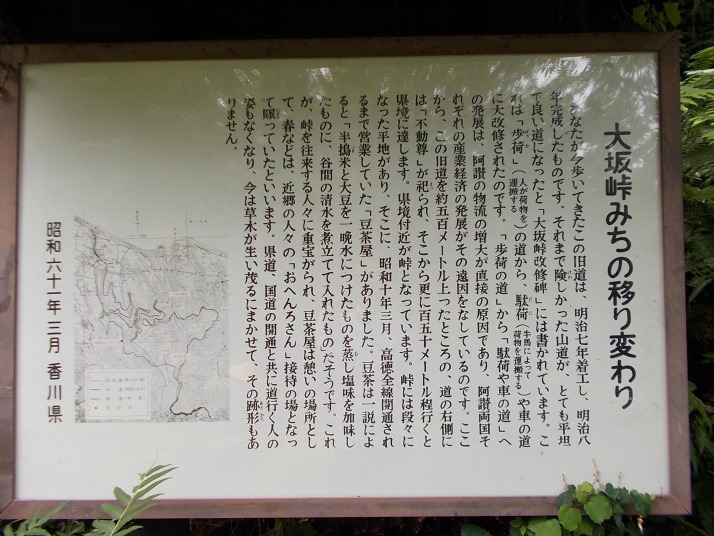 大坂峠みちの移り変わり
あなたが今歩いてきたこの旧道は、明治七年着工し、明治八
年完成したものです。それまで険しかった山道が、とても平坦
で良い道になったと「大坂峠改修碑」には書かれています。こ
れは「歩荷」(人が荷物を運搬する)の道から、駄荷(牛馬によって荷物を運搬する)や車の道
に大改修されたのです。「歩荷の道」から「駄荷や車の道」へ
の発展は、阿讃の物流の増大が直接の原因であり、阿讃両国そ
れぞれの産業経済の発展がその遠因をなしているのです。ここ
から、この旧道を約五百メートル上ったところの、道の右側に
は「不動尊」が祀られ、そこから更に百五十メートル程行くと
県境に達します。県境付近が峠となっています。峠には段々に
なった平地があり、そこに、昭和十年三月、高徳全線開通され
るまで営業していた「豆茶屋」がありました。豆茶は一説によ
ると「半搗米と大豆を一晩水につけたものを蒸し塩味を加味し
たものに、谷間の清水を煮立てて入れたもの」だそうです。これ
が、峠を往来する人々に重宝がられ、豆茶屋は憩いの場所とし
て、春などは、近郷の人々の「おへんろさん」接待の場となっ
て賑っていたといいます。県道、国道の開通と共に道行く人の
姿もなくなり、今は草木が生い茂るにまかせて、その跡形もあ
りません。
昭和六十一年三月 香川県